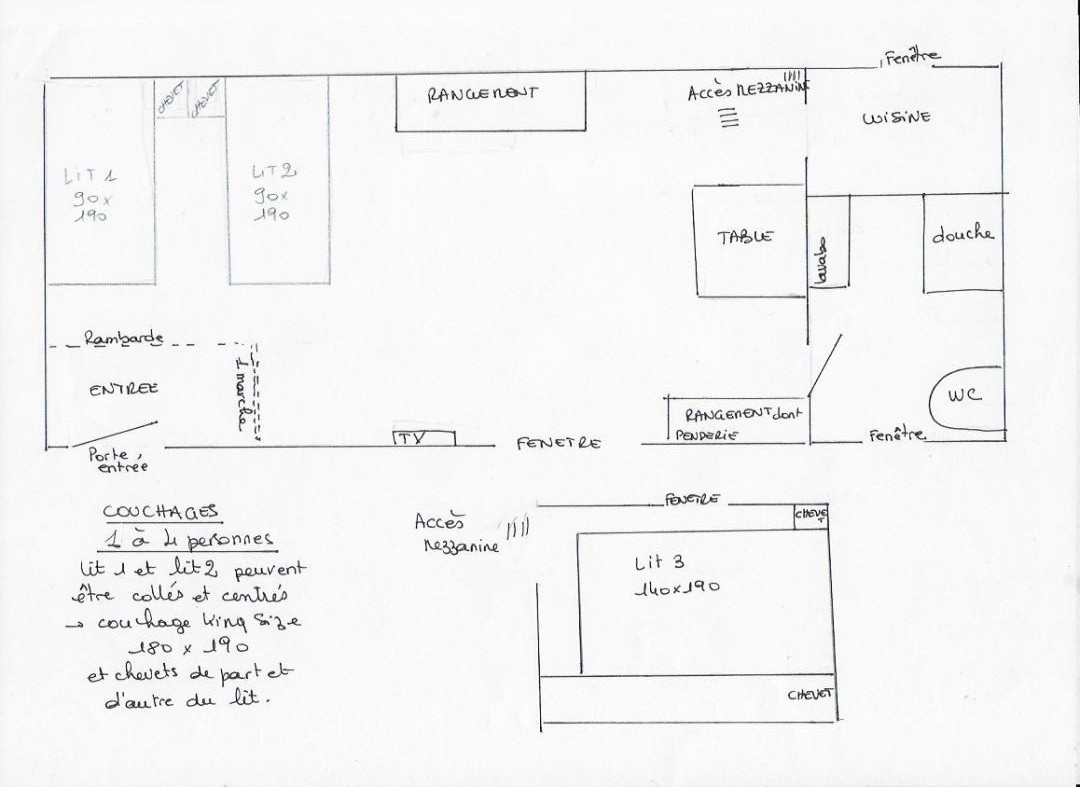 Fenêtre
CHEVET
CHEVET
RANGEMENT
Accès MEZZANINE
CUISINE
LIT 1
90 x
190
LIT 2
90 x
190
TABLE
lavabo
douche
Rambarde
ENTREE
1 marche
WC
RANGEMENT dont
PENDERIE
TV
FENETRE
Fenêtre
Porte
entrée
COUCHAGES
1 à 4 personnes
lit 1 et lit 2 peuvent
être collés et centrés
→ couchage King Size
180 x 190
et chevets de part et
d'autre du lit.
Accès
Mezzanine
FENETRE
CHEVET
Lit 3
140x190
CHEVET